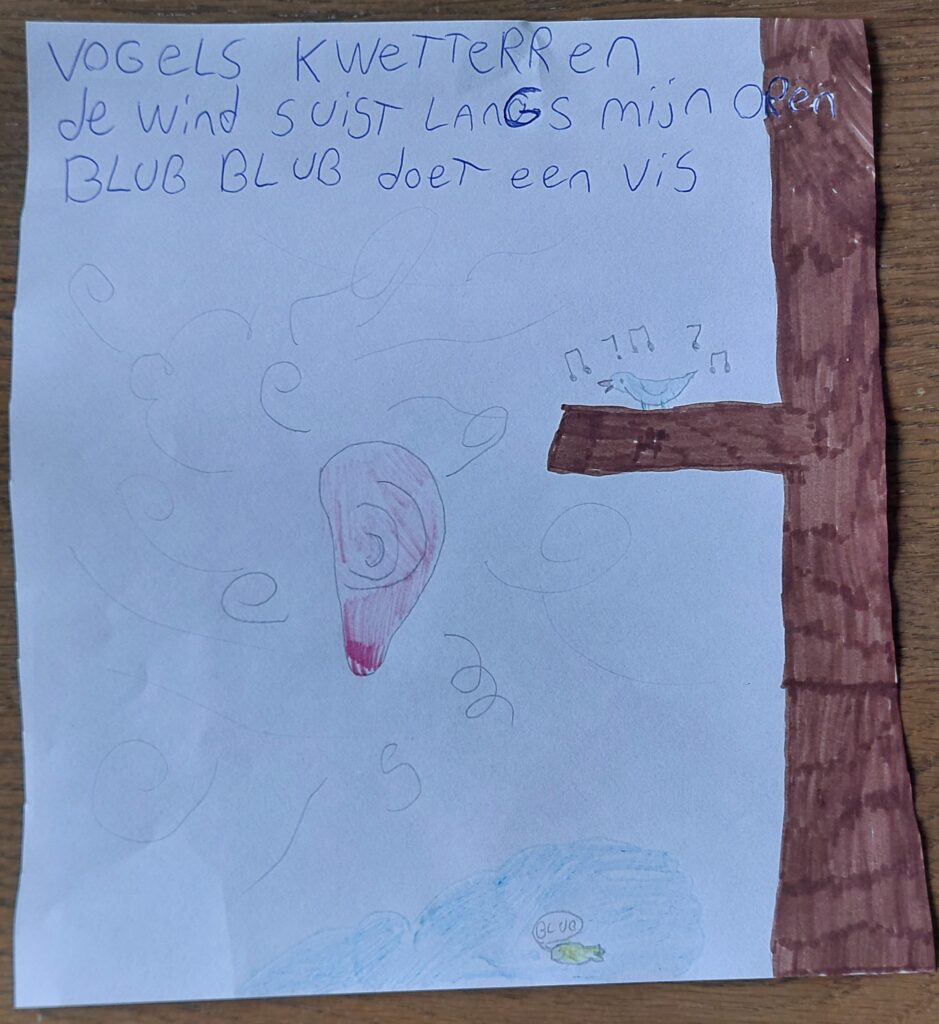 VOGELS KWETTERREN
de wind SUIST LANGS mijn OREN
BLUB BLUB doet een VIS
BLUB